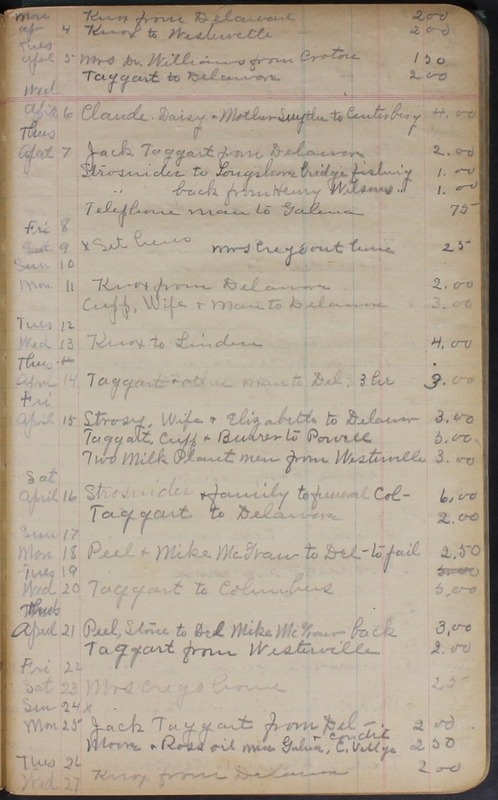 Mon Knox from Delaware 2 00
Apr 4 Knox to Westerville 2 00
Tues
April 5 Mrs Dr. Williams from Croton 1 50
Taggart to Delaware 2 00
Wed
April 6 Claude. Daisy + Mother Smythe to Centerburg 4.00
Thurs
April 7 Jack Taggart from Delaware 2.00
Strosnider to Longshore bridge fishing 1.00
" back from Henry Wilsons " 1.00
Telephone man to Galena 75
Fri 8
Sat 9 x Set hens Mrs Crego out home 25
Sun 10
Mon 11 Knox from Delaware 2.00
Cuff, Wife + Man to Delaware 3.00
Tues 12
Wed 13 Knox to Linden 4.00
Thurs
April 14 Taggart + other man to Del. 3 hr 3.00
Fri
April 15 Strosy, Wife + Elizabeth to Delawr 3.00
Taggart, Cuff + to Powell 5.00
Two Milk Plant men from Westerville 3.00
Sat
April 16 Strosnider + family to funeral Col- 6,00
Taggart to Delaware 2.00
Sun 17
Mon 18 Peel + Mike McGraw to Del - to jail 2,50
Tues 19 5.00
Wed 20 Taggart to Columbus 5,00
Thurs
April 21 Peel, Stone to Del Mike McGraw back 3,00
Taggart from Westerville 2.00
Fri 22
Sat 23 Mrs Crego home 25
Sun 24 x
Mon 25 Jack Taggart from Del - 2 00
Moore + Ross oil men Galena, + Condit C. Village 2 50
Tues 26
Wed 27 Knox from Delaware 2 00